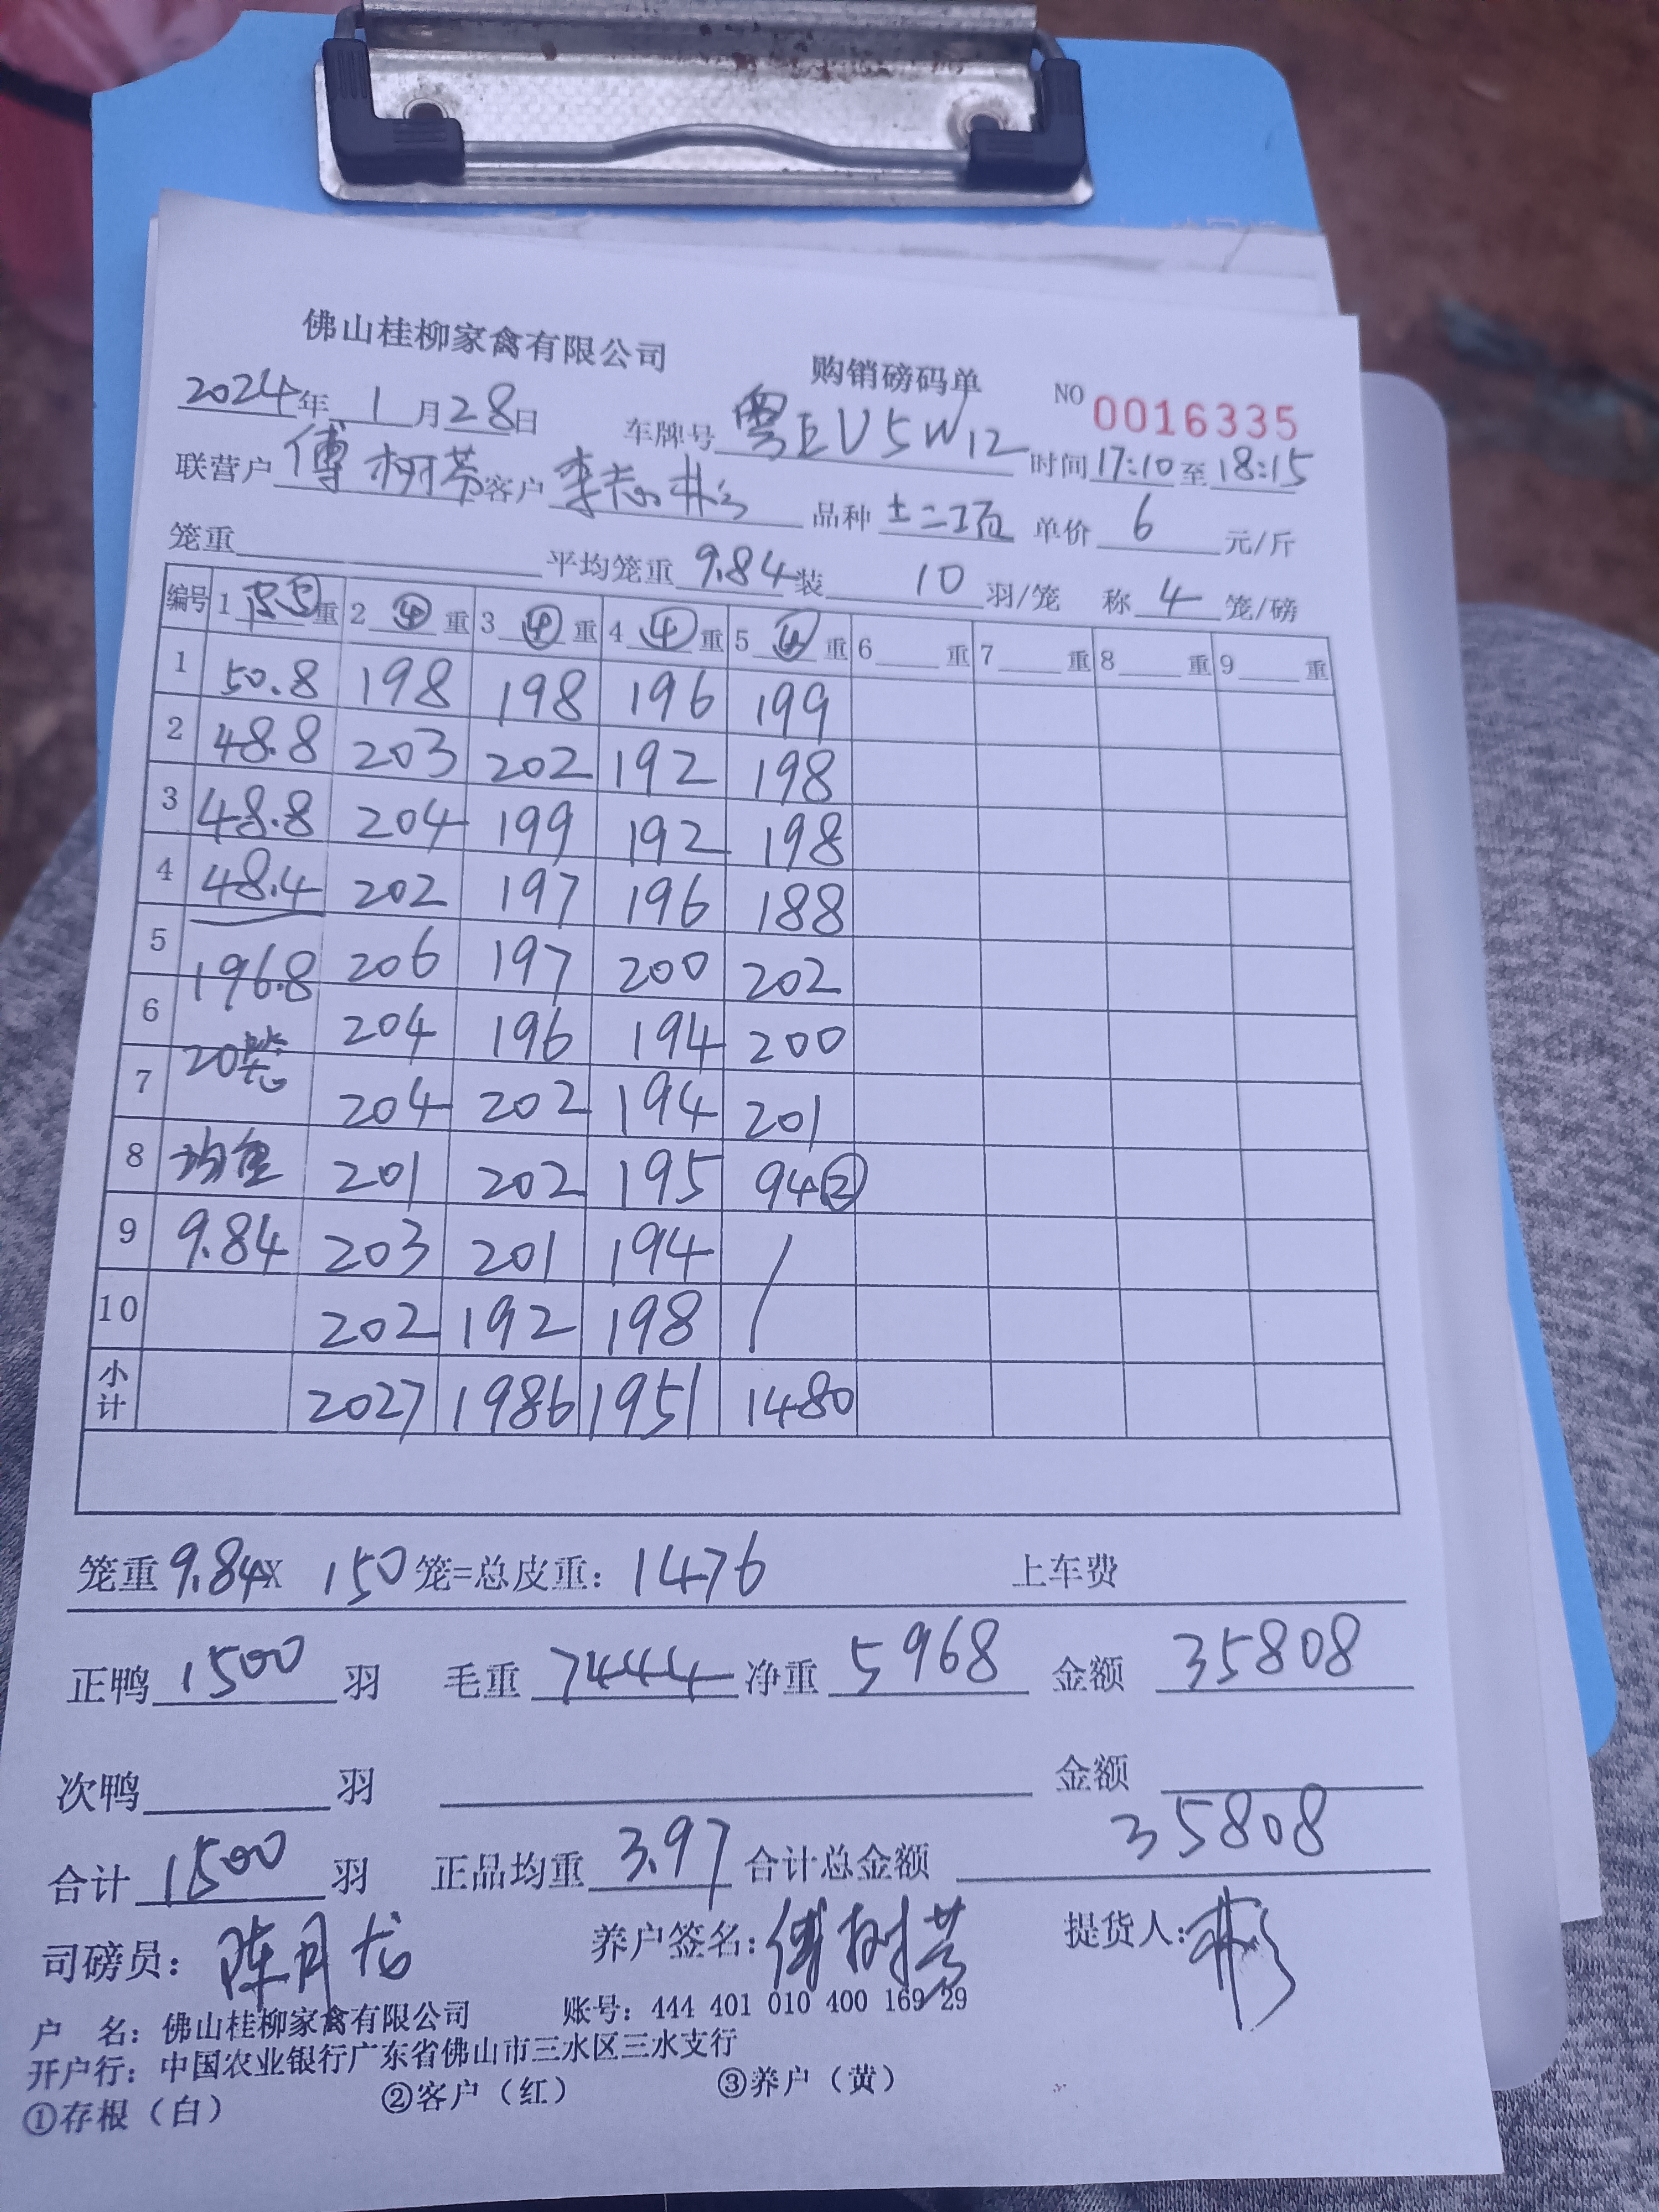 佛山桂柳家禽有限公司 购销磅码单 NO 0016335
2024年 1月28日 车牌号 粤EV5W12 时间17:10至18:15
联营户 傅树芬 客户 李志彬 品种 土二项 单价 6 元/斤
笼重 平均笼重 9.84 装 10 羽/笼 称 4 笼/磅
编号 1 ⑤重 2 ④ 重 3 ④ 重 4 ④ 重 5 ④ 重 6 重 7 重 8 重 9 重
1 50.8 198 198 196 199
2 48.8 203 202 192 198
3 48.8 204 199 192 198
4 48.4 202 197 196 188
5 196.8 206 197 200 202
6 20笼 204 196 194 200
7 204 202 194 201
8 均重 201 202 195 94②
9 9.84 203 201 194 /
10 202 192 198 /
小计 2027 1986 1951 1480
笼重9.84X 150笼=总皮重: 1476 上车费
正鸭 1500 羽 毛重 7444 净重 5968 金额 35808
次鸭 羽 金额
合计 1500 羽 正品均重 3.97 合计总金额 35808
司磅员: 陈月龙 养户签名: 傅树芬 提货人: 彬
户 名: 佛山桂柳家禽有限公司 账号: 444 401 010 400 169 29
开户行: 中国农业银行广东省佛山市三水区三水支行
①存根（白） ②客户（红） ③养户（黄）